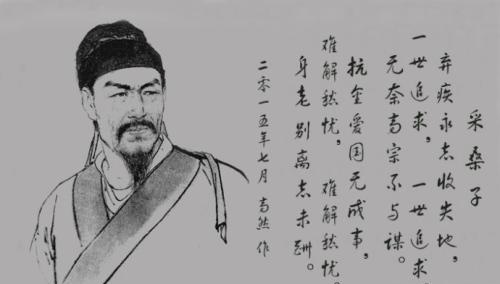 采桑子
弃疾永志收失地，
一世追求，一世追求，
无奈高宗不与谋。
抗金爱国无成事，
难解愁忧，难解愁忧，
身老别离志未酬。
二零一五年七月 高然作